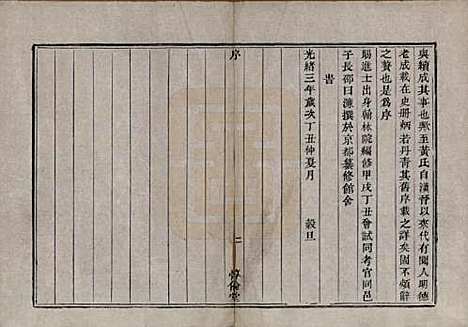 與績成其事也歟至黃氏自漢晉以來代有聞人明德
老成載在史冊炳若丹青其舊序載之詳矣固不煩辭
之贅也是為序
賜進士出身翰林院編修甲戌丁丑會試同考官同邑
子長邵曰濂撰於京都纂修館舍
旹
光緒三年歲次丁丑仲夏月　穀旦
序　二　惇倫堂